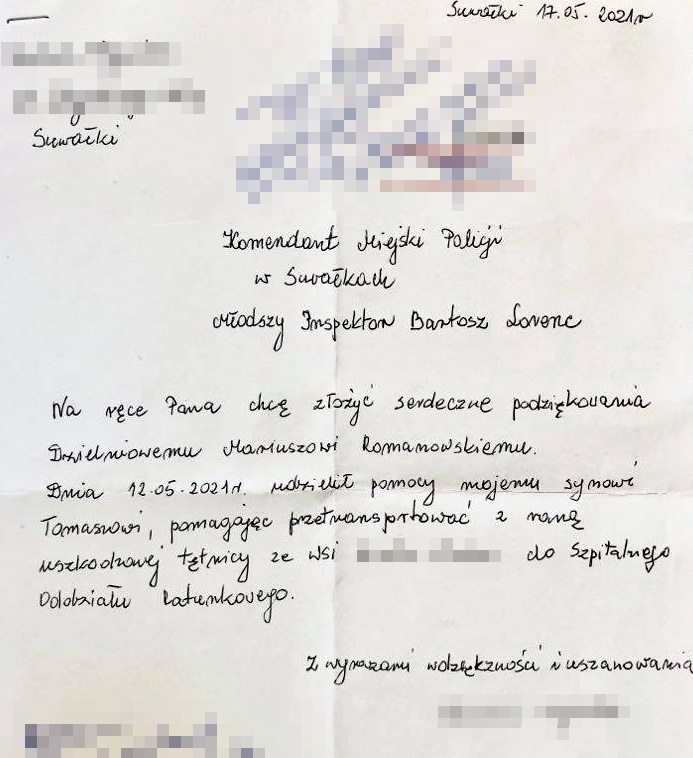 Suwałki 17.05.2021r
Suwałki
Komendant Miejski Policji
w Suwałkach
Młodszy Inspektor Bartosz Lorenc
Na ręce Pana chcę złożyć serdeczne podziękowania
Dzielnicowemu Mariuszowi Romanowskiemu.
Dnia 12.05.2021r. udzielił pomocy mojemu synowi
Tomaszowi, pomagając przetransportować z raną
uszkodzonej tętnicy ze wsi do Szpitalnego
Oddziału Ratunkowego.
Z wyrazami wdzięczności i uszanowania